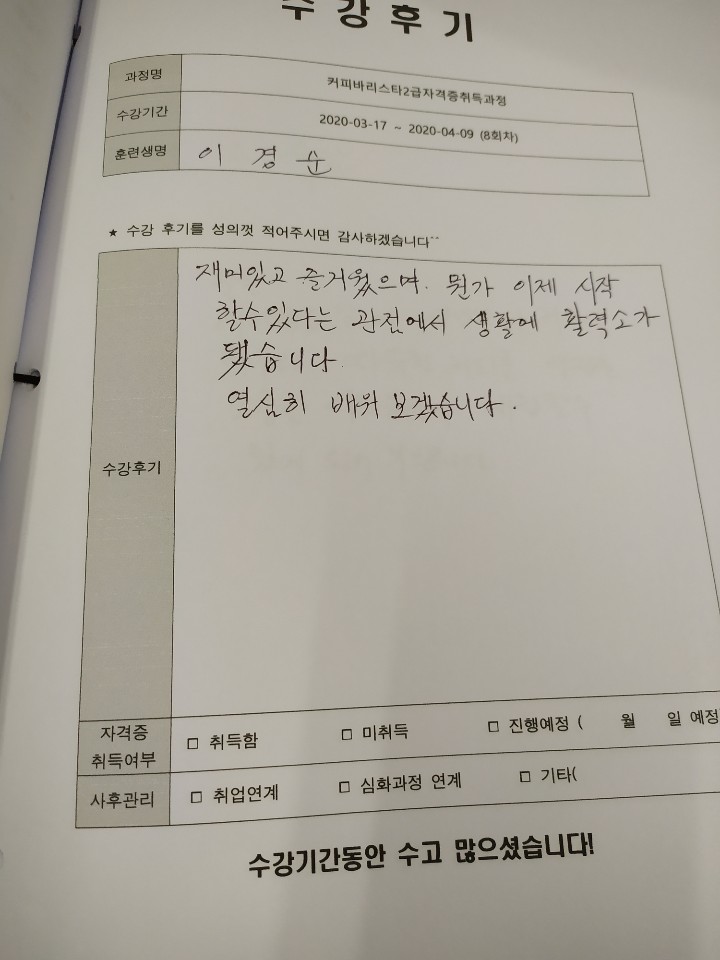 수강후기
과정명 커피바리스타2급자격증취득과정
수강기간 2020-03-17 ~ 2020-04-09 (8회차)
훈련생명 이경순
★ 수강 후기를 성의껏 적어주시면 감사하겠습니다^^
재미있고 즐거웠으며. 뭔가 이제 시작
할수있다는 관점에서 생활에 활력소가
됐습니다.
열심히 배워 보겠습니다.
수강후기
자격증
취득여부
□ 취득함 □ 미취득 □ 진행예정 ( 월 일 예정
사후관리 □ 취업연계 □ 심화과정 연계 □ 기타(
수강기간동안 수고 많으셨습니다!